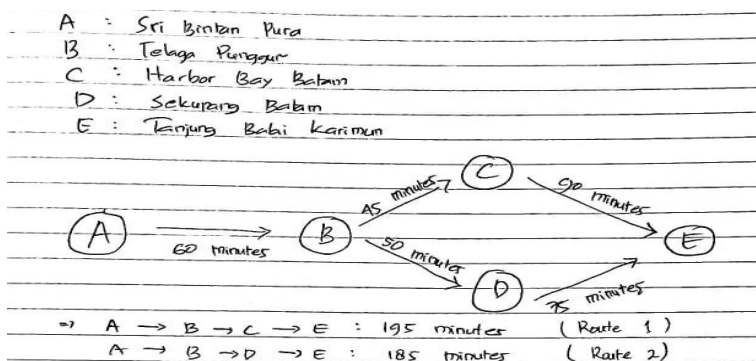 A : Sri Bintan Pura
B : Telaga Punggur
C : Harbor Bay Batam
D : Sekupang Batam
E : Tanjung Balai Karimun
C
45 minutes
90 minutes
A
60 minutes
B
E
50 minutes
D
75 minutes
⇒ A → B → C → E : 195 minutes (Route 1)
A → B → D → E : 185 minutes (Route 2)